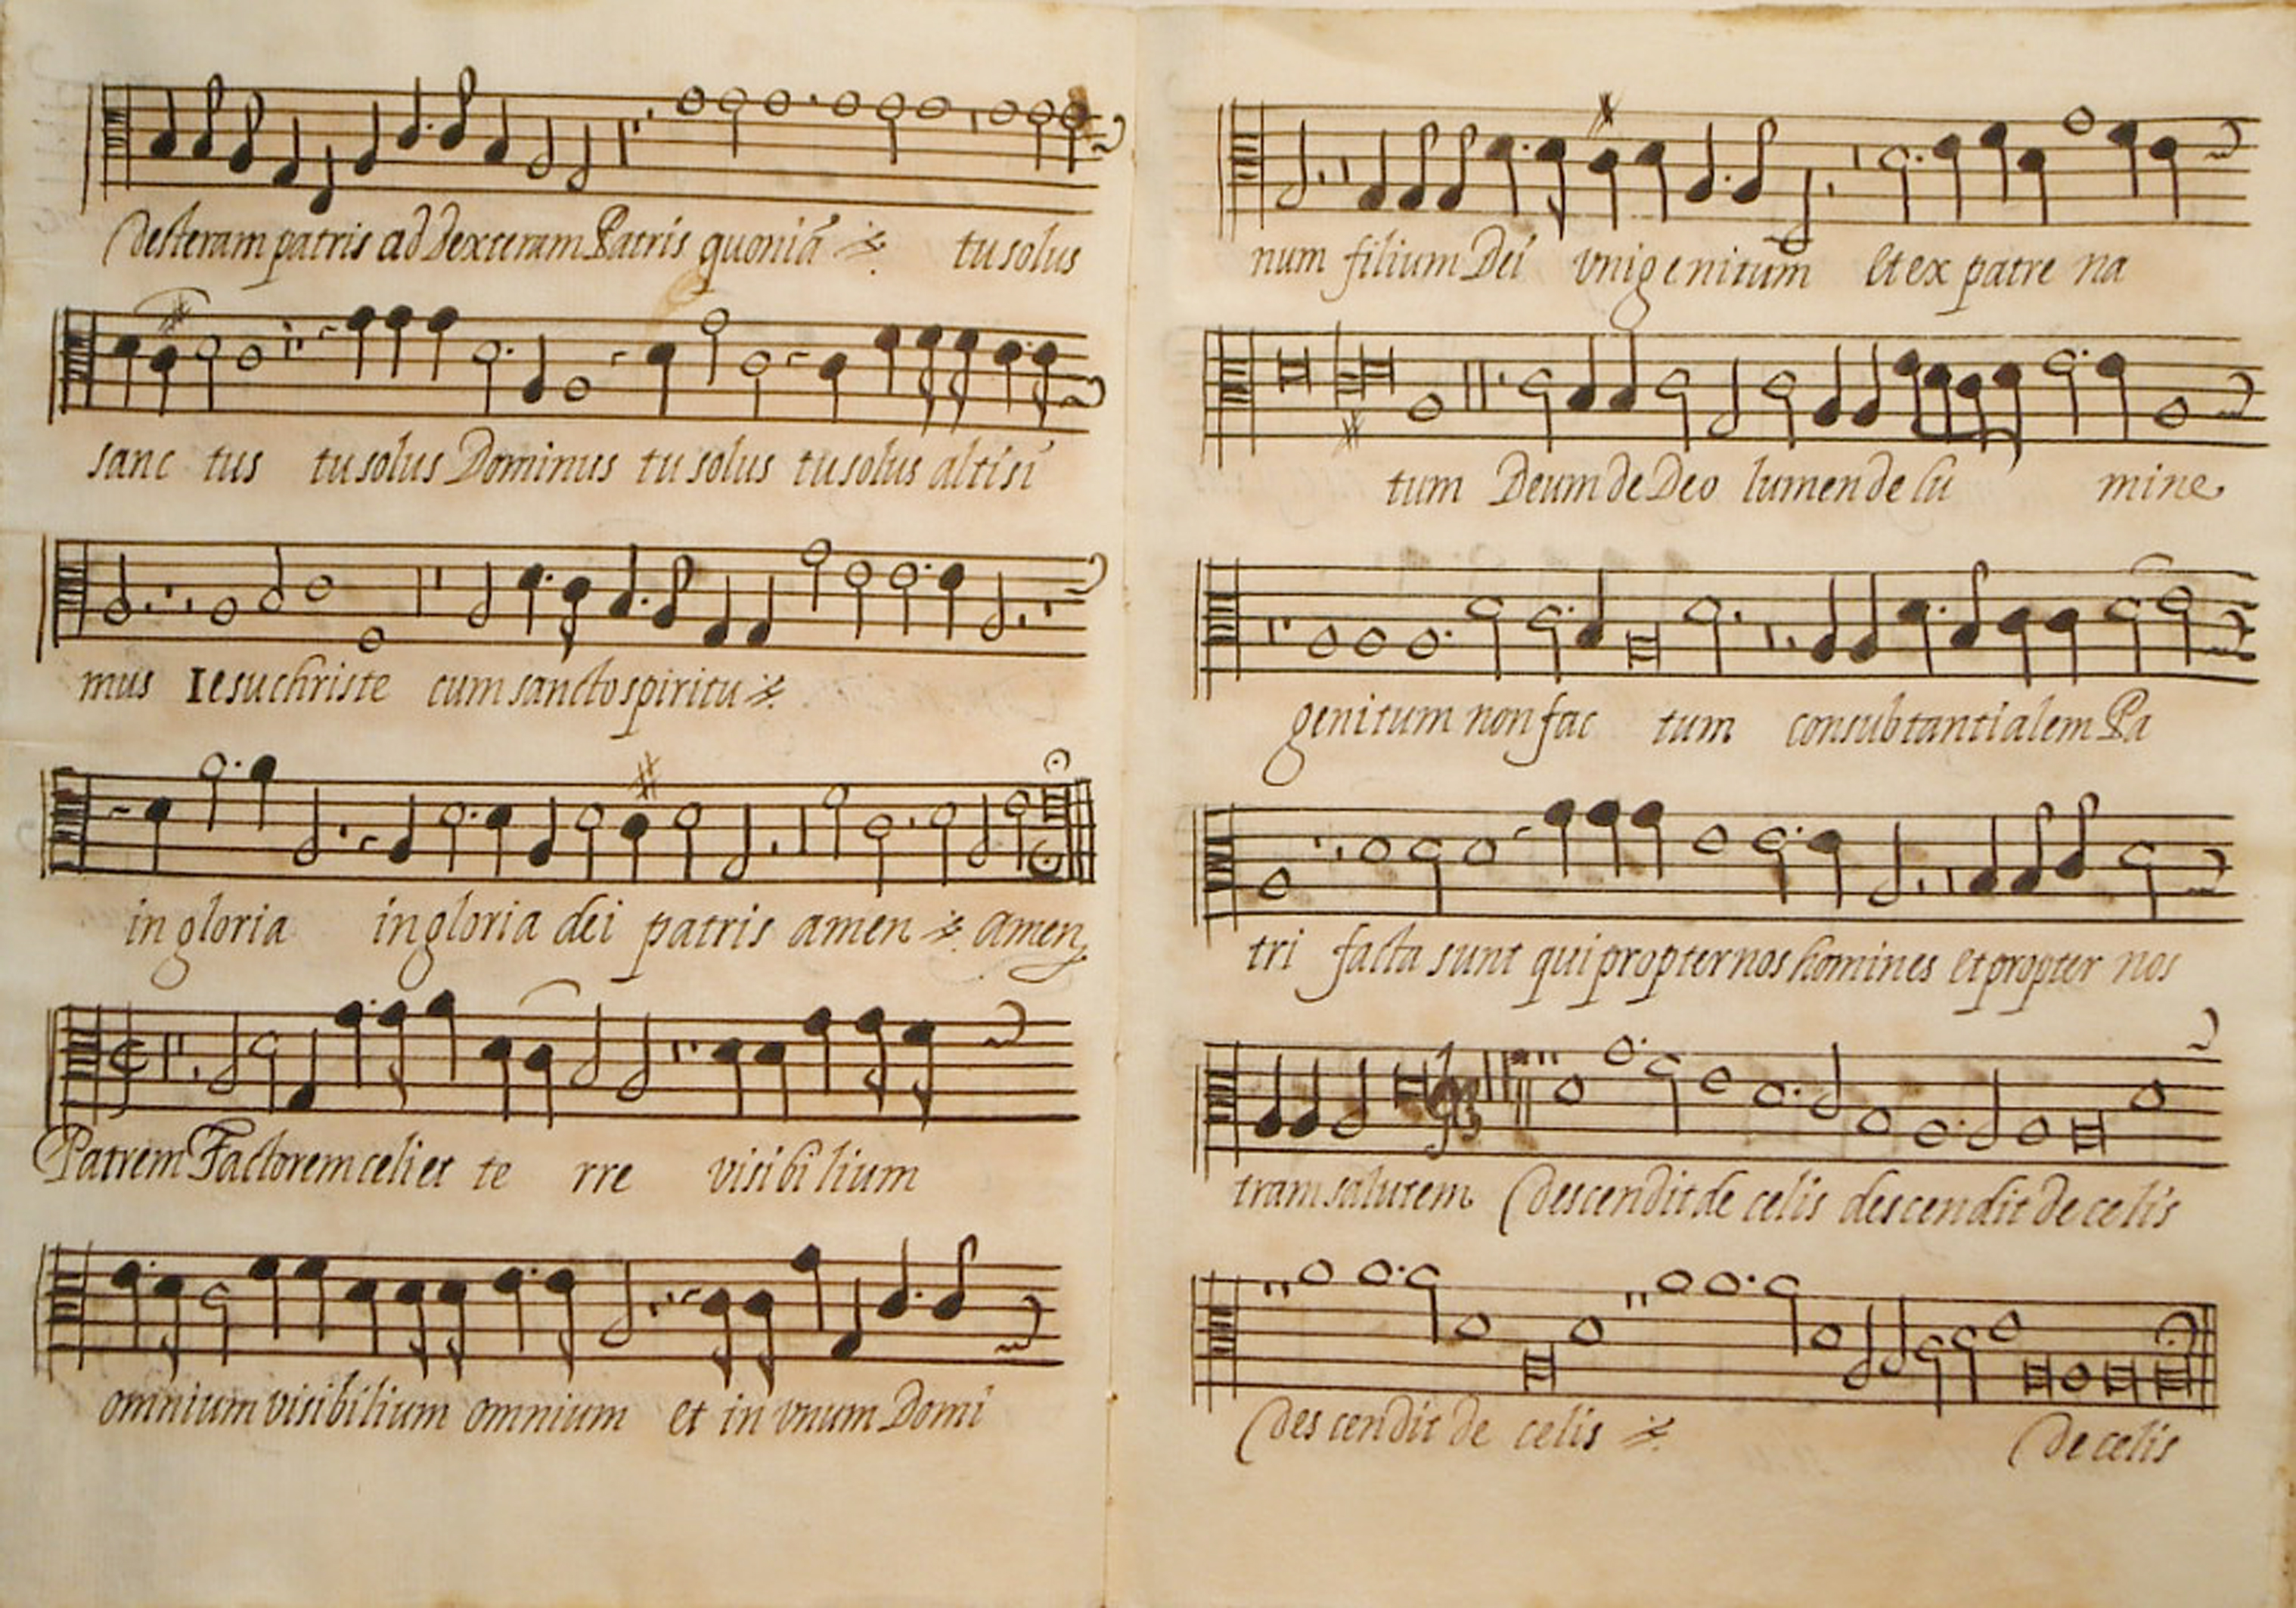 desteram patris ad Dexteram Patris quoniã tu solus
sanc tus tu solus Dominus tu solus tu solus altisi
mus Iesu christe cum sancto spiritu
in gloria in gloria dei patris amen amen
Patrem Factorem celi et te rre visibilium
omnium visibilium omnium et in vnum Domi
num filium Dei vnigenitum et ex patre na
tum Deum de Deo lumen de lu mine
genitum non fac tum consubtantialem Pa
tri facta sunt qui propter nos homines et propter nos
tram salutem descendit de celis descendit de celis
descendit de celis de celis